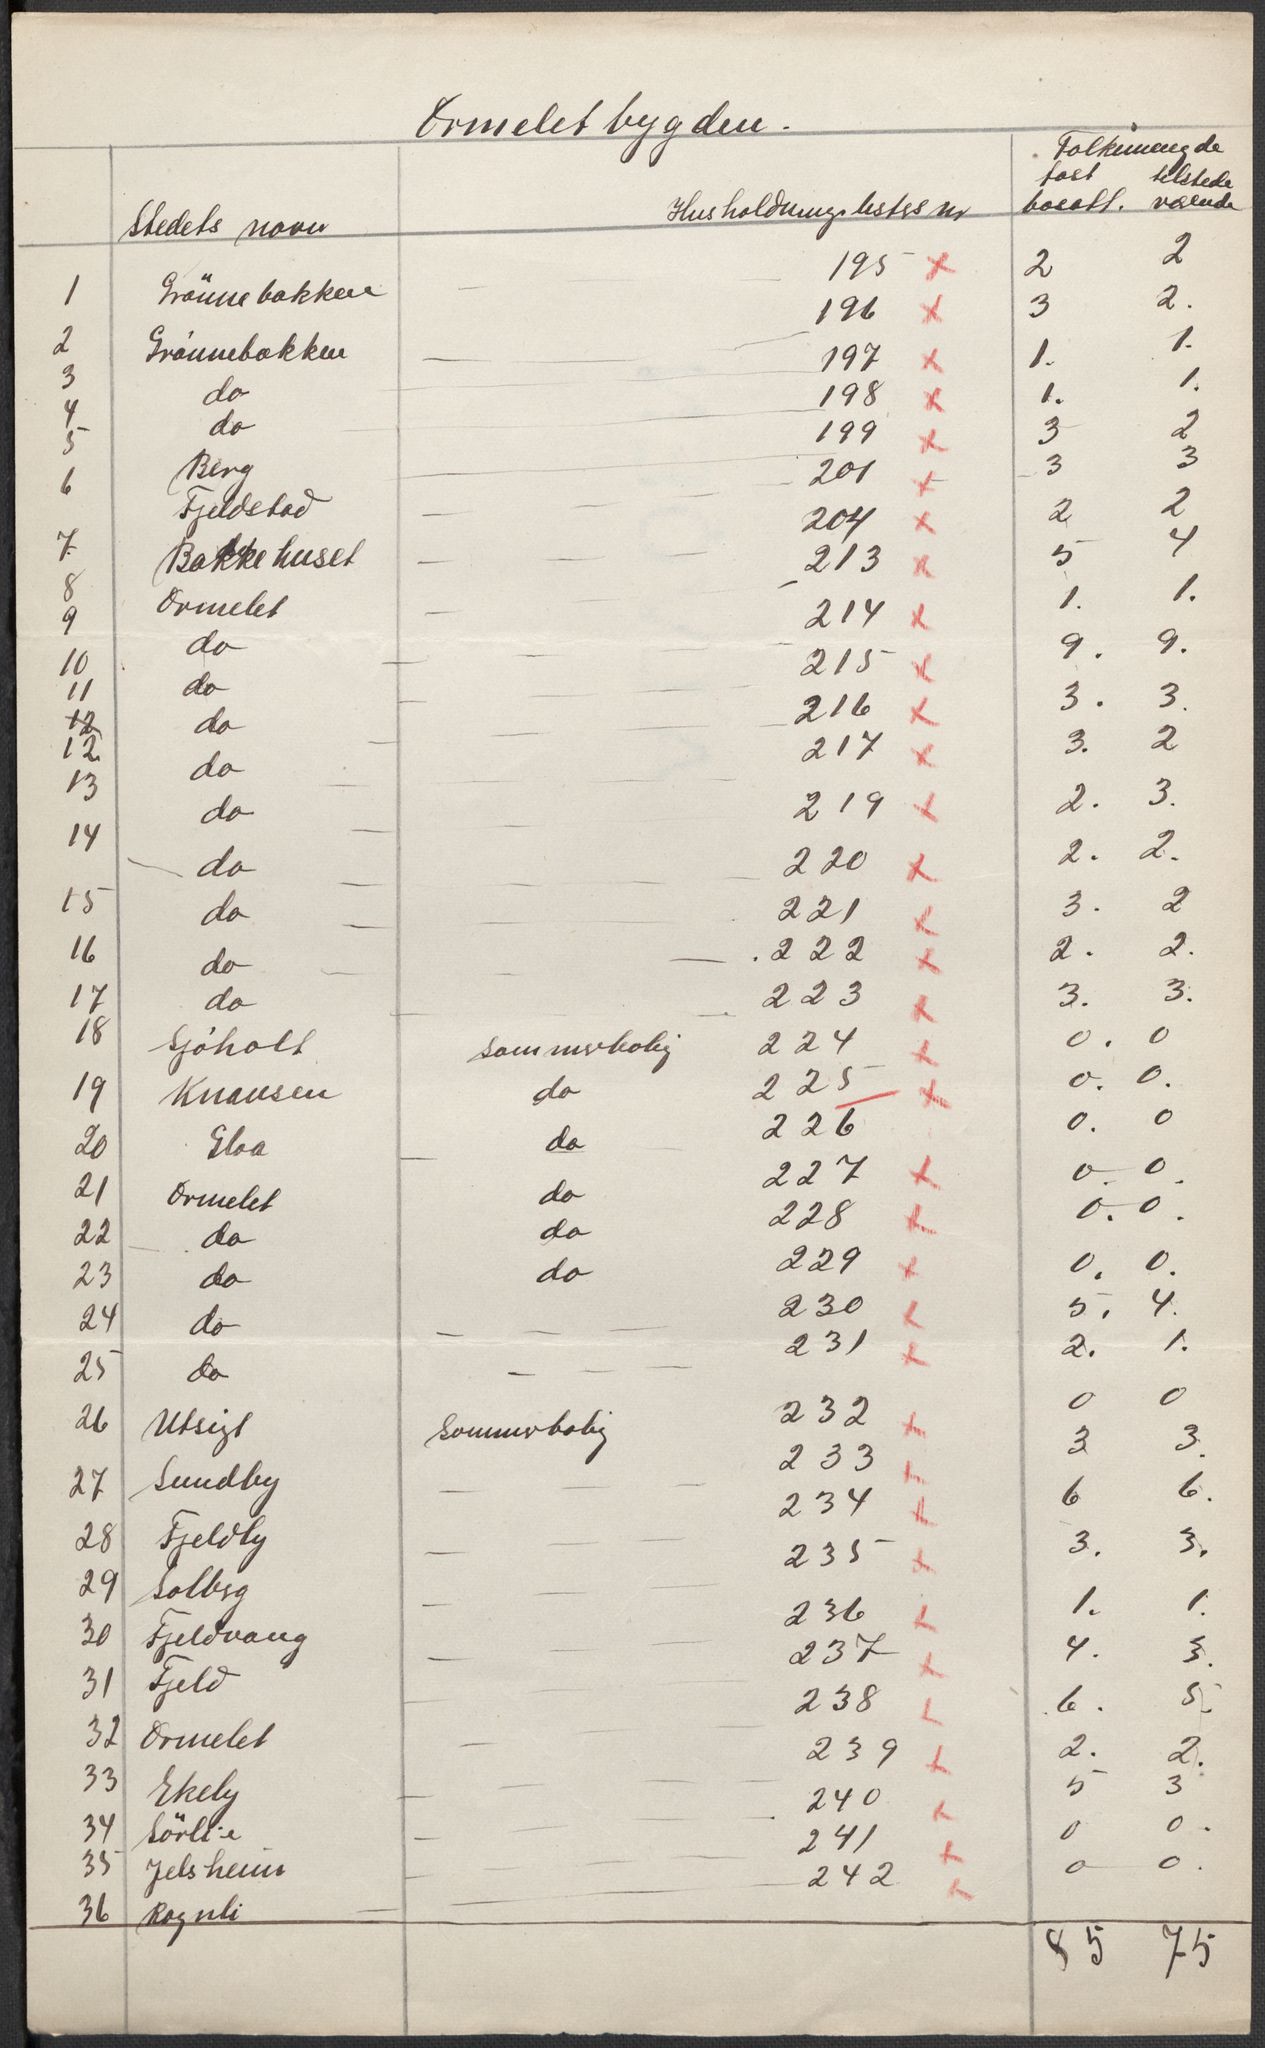 Ormelet bygden.
Folkemengde
Stedets navn Husholdningslistes nr fast bosatt. tilstede værende
1 Grönnebakken — 195 x 2 2
2 Grönnebakken — 196 x 3 2.
3 do — 197 x 1. 1.
4 do — 198 x 1. 1.
5 Berg — 199 x 3 2
6 Fjeldstad — 201 x 3 3
7 Bakkehuset — 204 x 2 2
8 Ormelet — 213 x 5 4
9 do — 214 x 1. 1.
10 do — 215 x 9. 9.
11 do — 216 x 3. 3.
12
12 do — 217 x 3. 2
13 do — 219 x 2. 3.
14 do — 220 x 2. 2.
15 do — 221 x 3. 2
16 do — 222 x 2. 2.
17 do — 223 x 3. 3.
18 Sjöholt Sommerbolig 224 x 0. 0
19 Knausen do 225 x 0. 0.
20 do 226 0. 0
21 Ormelet do 227 x 0. 0.
22 do do 228 x 0. 0.
23 do do 229 x 0. 0.
24 do — 230 x 5. 4.
25 do — 231 x 2. 1.
26 Utsigt Sommerbolig 232 x 0 0
27 Sundby — 233 x 3 3.
28 Fjeldby — 234 x 6 6.
29 Solberg — 235 x 3. 3.
30 Fjeldvang — 236 x 1. 1.
31 Fjeld — 237 x 4. 3.
32 Ormelet — 238 x 6. 5.
33 Ekely — 239 x 2. 2.
34 Sörlie — 240 x 5 3
35 Jelsheim — 241 x 0 0.
36 Rognli — 242 x 0 0.
85 75